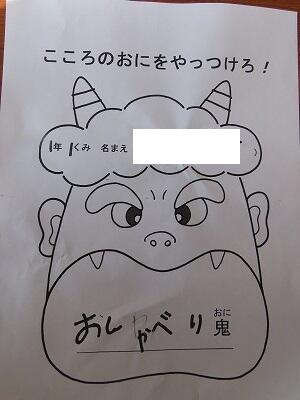 こころのおにをやっつけろ！
1年 1くみ 名まえ
おしゃべり鬼
おに